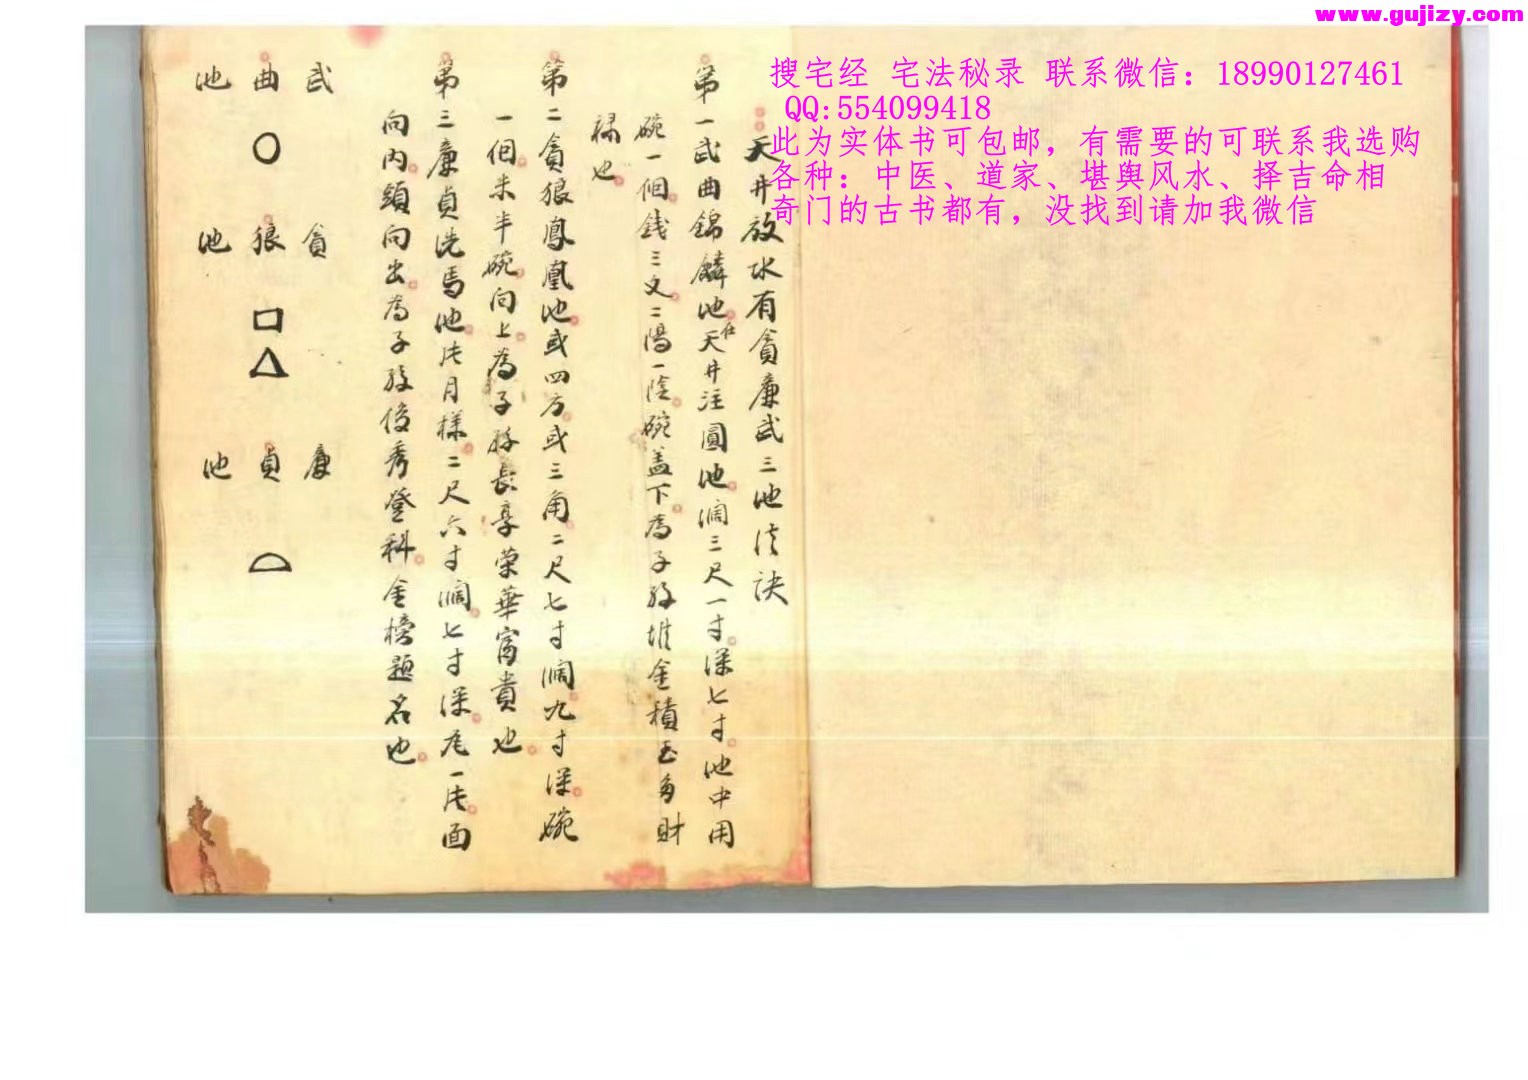 www.gujizy.com
搜宅经 宅法秘录 联系微信：18990127461
QQ:554099418
此为实体书可包邮，有需要的可联系我选购
各种：中医、道家、堪舆风水、择吉命相
奇门的古书都有，没找到请加我微信
天井放水有貪廉武三池法訣
第一武曲錦鱗池在天井注圓池濶三尺一寸深七寸池中用
碗一個錢三文二陽一陰碗盖下為子孫堆金積玉多財
祿也
第二貪狼鳳凰池或四方或三角二尺七寸濶九寸深碗
一個米半碗向上為子孫長享荣華富貴也
第三廉貞洗馬池法月樣二尺六寸濶七寸深瓦一法面
向内頭向出為子孫俊秀登科金榜題名也
武
曲
池
貪
狼
池
廉
貞
池